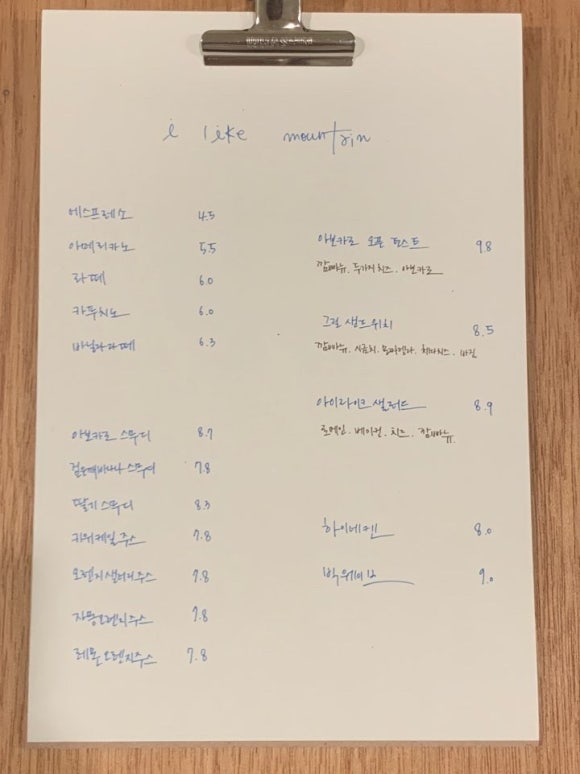 i like mountain
에스프레소 4.5
아메리카노 5.5
라떼 6.0
카푸치노 6.0
바닐라라떼 6.3
아보카도 스무디 8.7
검은깨바나나 스무디 7.8
딸기 스무디 8.3
키위케일주스 7.8
오렌지샐러리주스 7.8
자몽오렌지주스 7.8
레몬오렌지주스 7.8
아보카도 오픈 토스트 9.8
깜빠뉴. 두가지치즈. 아보카도
그릴 샌드위치 8.5
깜빠뉴. 시금치. 모짜렐라. 바질
아이라이크샐러드 8.9
로메인. 베이컨. 치즈. 깜빠뉴
하이네켄 8.0
빅웨이브 9.0